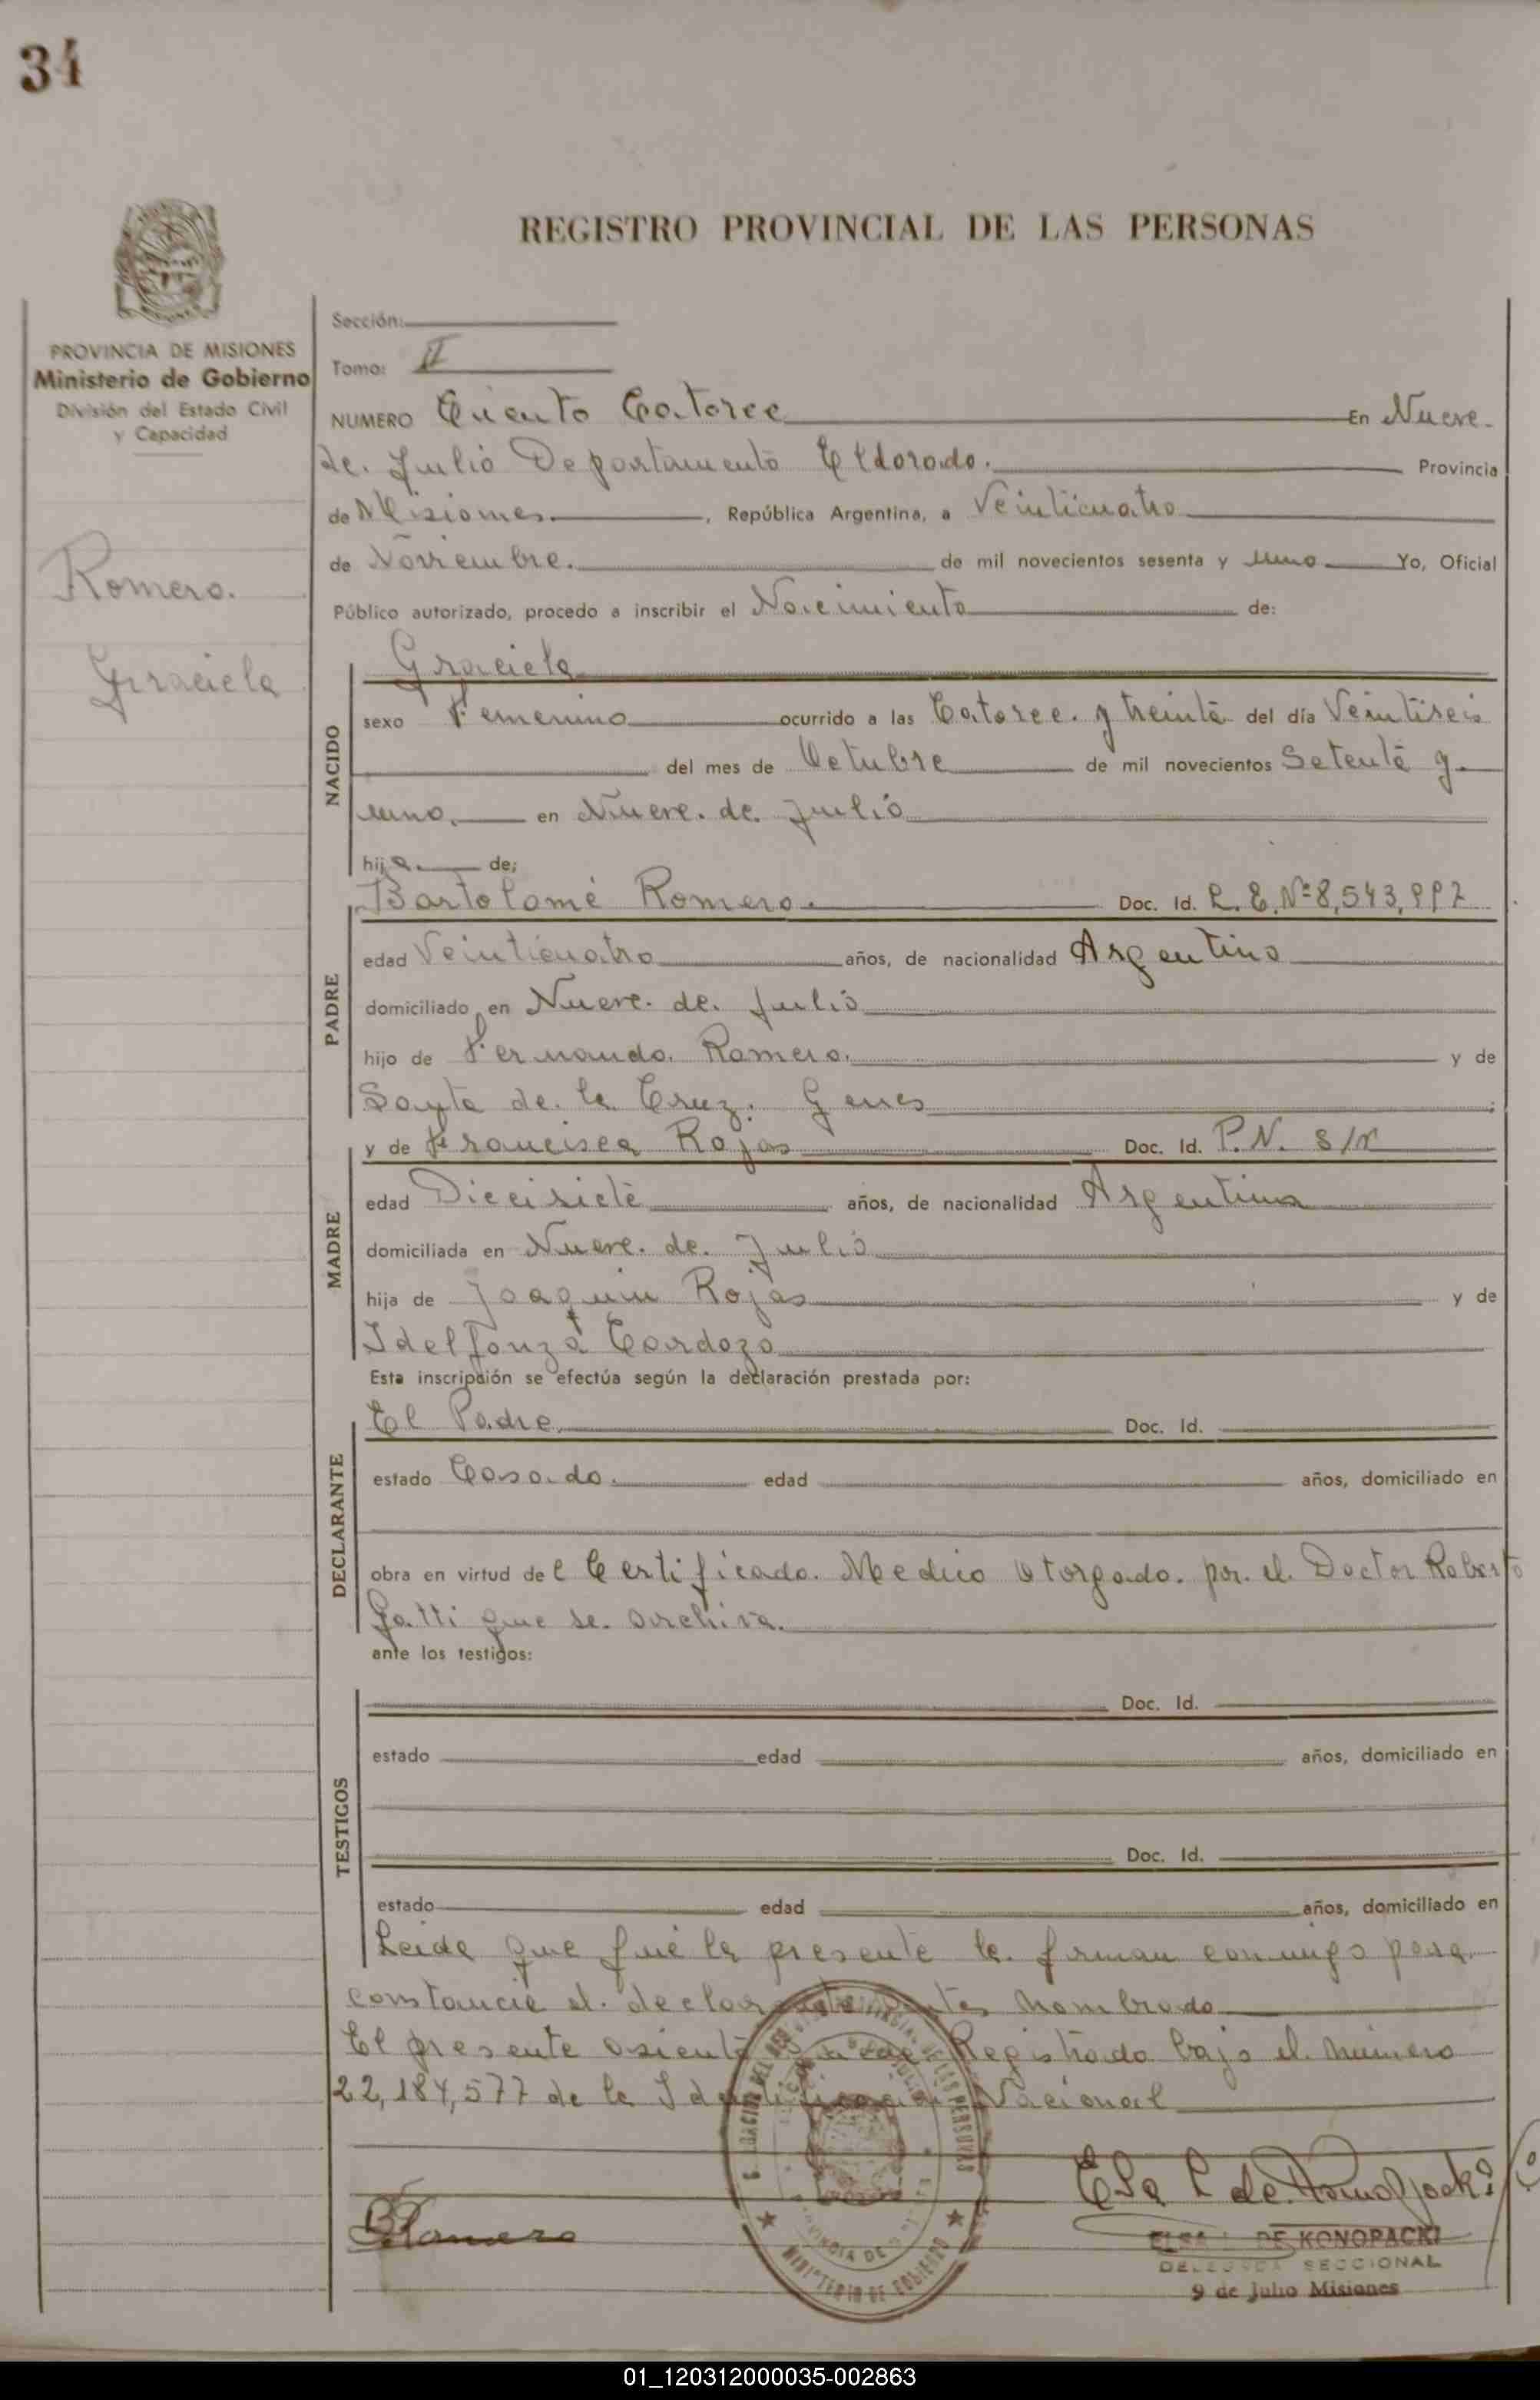 34
REGISTRO PROVINCIAL DE LAS PERSONAS
PROVINCIA DE MISIONES
Ministerio de Gobierno
División del Estado Civil
y Capacidad
Romero.
Graciela
Sección:
Tomo: II
NUMERO Ciento Catorce En Nueve
de Julio Departamento Eldorado. Provincia
de Misiones, República Argentina, a Veinticuatro
de Noviembre. de mil novecientos sesenta y uno Yo, Oficial
Público autorizado, procedo a inscribir el Nacimiento de:
NACIDO
Graciela
sexo Femenino ocurrido a las Catorce y treinta del día Veintiseis
del mes de Octubre de mil novecientos Setenta y
uno, en Nueve de Julio
hija de:
PADRE
Bartolomé Romero. Doc. Id. L. E. Nº 8,543,992
edad Veinticuatro años, de nacionalidad Argentino
domiciliado en Nueve de Julio
hijo de Fernando Romero. y de
Santa de la Cruz Genes ;
MADRE
y de Francisca Rojas Doc. Id. P.N. S/N
edad Diecisiete años, de nacionalidad Argentina
domiciliada en Nueve de Julio
hija de Joaquin Rojas y de
Idelfonza Cardozo
Esta inscripción se efectúa según la declaración prestada por:
DECLARANTE
El Padre Doc. Id.
estado Casado. edad años, domiciliado en
obra en virtud del Certificado Medico Otorgado por el Doctor Roberto
Gatti que se archiva.
ante los testigos:
TESTIGOS
Doc. Id.
estado edad años, domiciliado en
Doc. Id.
estado edad años, domiciliado en
Leida que fué la presente la firman conmigo para
constancia el declarante antes nombrado
El presente asiento queda Registrado bajo el número
22,184,577 de la Identificación Nacional
BRomero
MINISTERIO DE GOBIERNO
ELSA L. DE KONOPACKI
DELEGADA SECCIONAL
9 de Julio Misiones
01_120312000035-002863